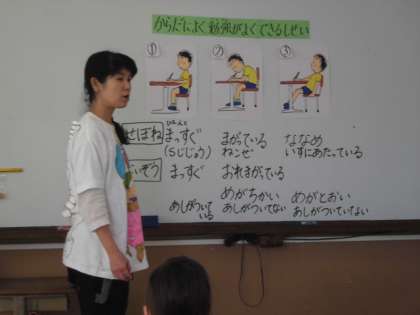 からだによく勉強がよくできるしせい
① ② ③
ほんと
せぼね まっすぐ まがっている ななめ
(Sじじょう) ねこぜ いすにあたっている
ぞう まっすぐ おれまがっている
あしがついている めがちかい めがとおい
あしがついてない あしがついていない